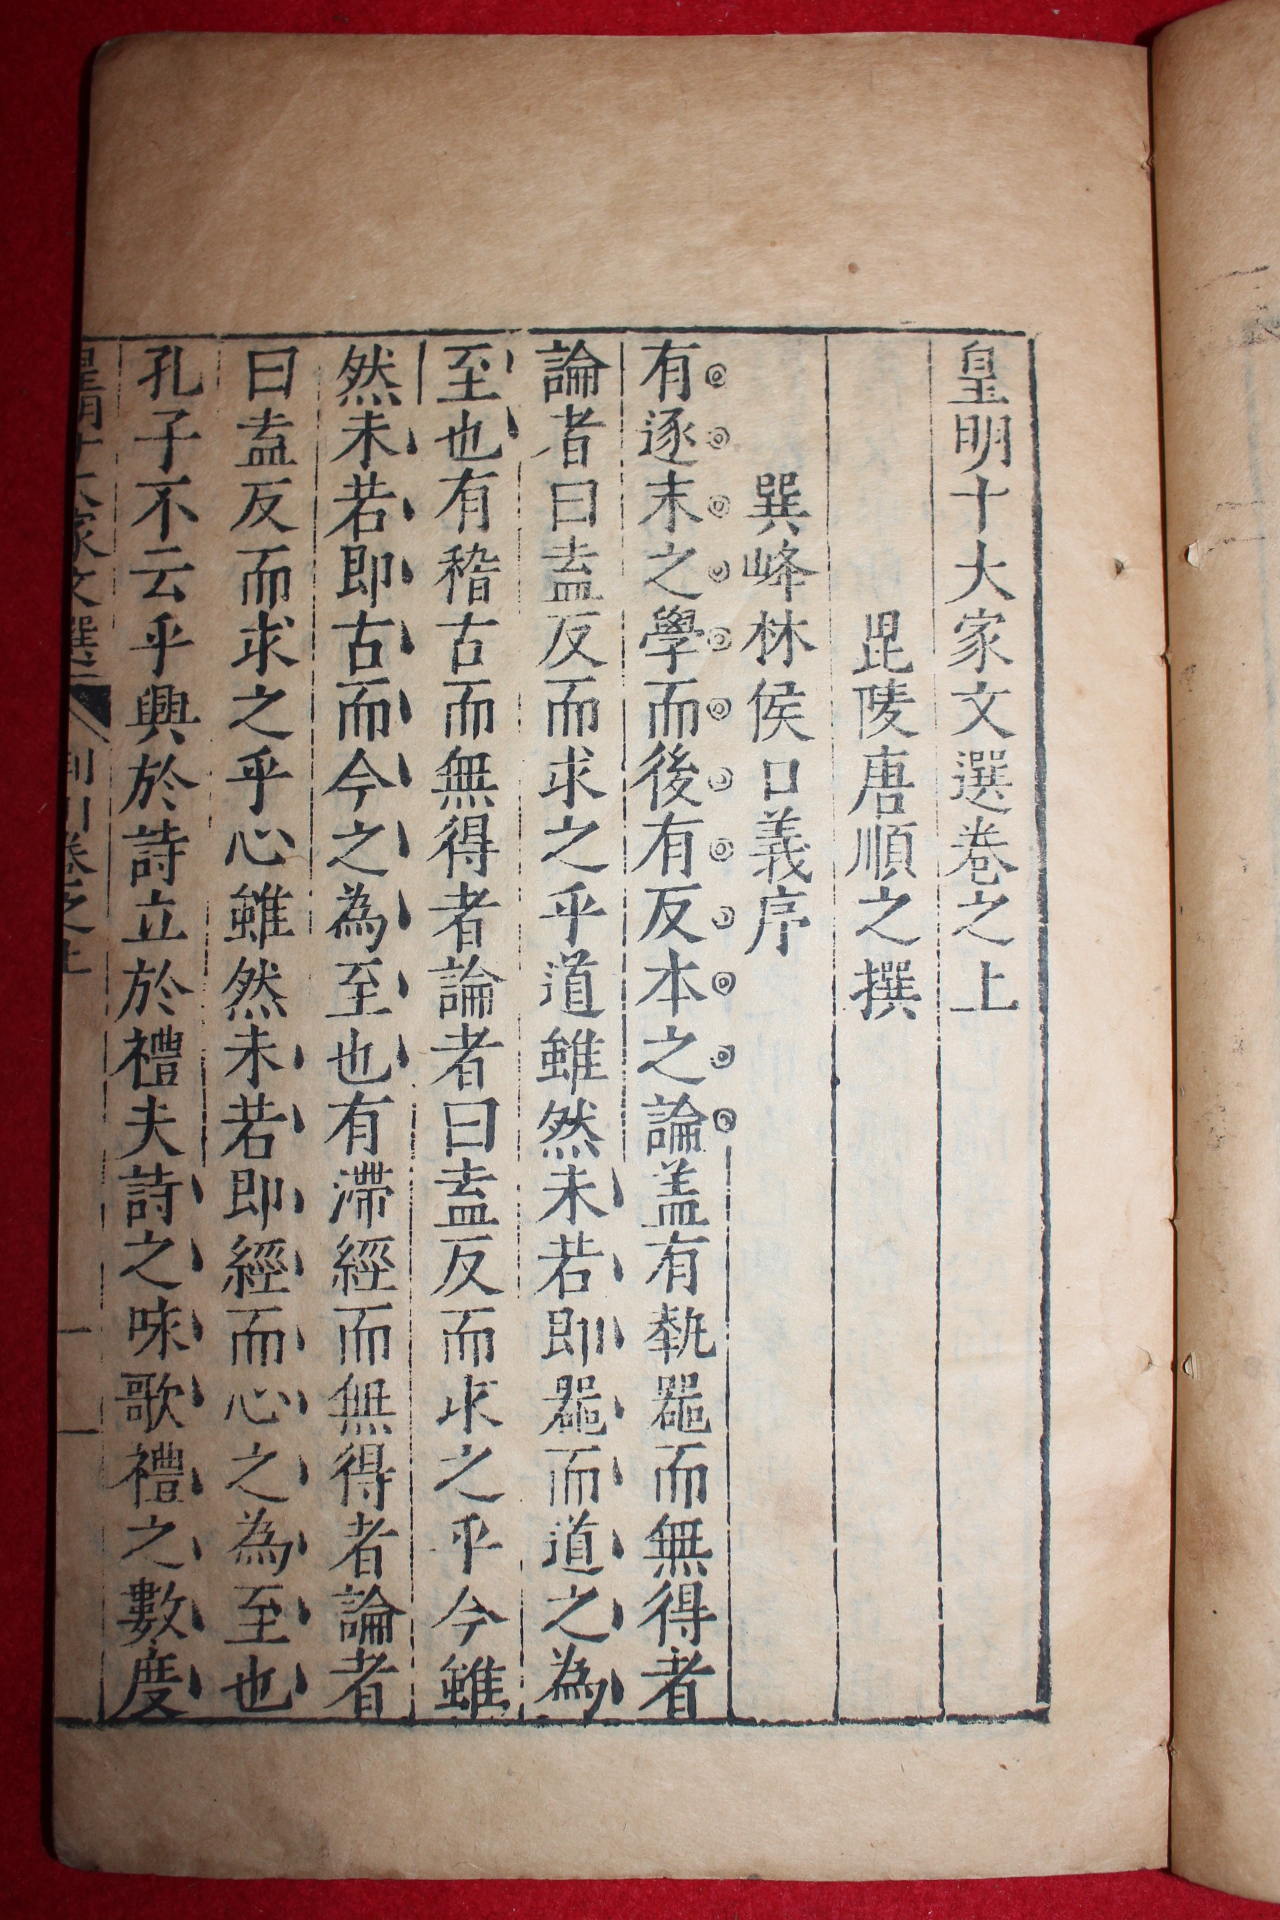 皇明十大家文選卷之上
毘陵唐順之撰
巽峰林侯口義序
有逐末之學而後有反本之論盖有執噐而無得者
論者曰盍反而求之乎道雖然未若即噐而道之為
至也有稽古而無得者論者曰盍反而求之乎今雖
然未若即古而今之為至也有滯經而無得者論者
曰盍反而求之乎心雖然未若即經而心之為至也
孔子不云乎興於詩立於禮夫詩之咏歌禮之數度
皇明十大家文選 荊川卷之上 一